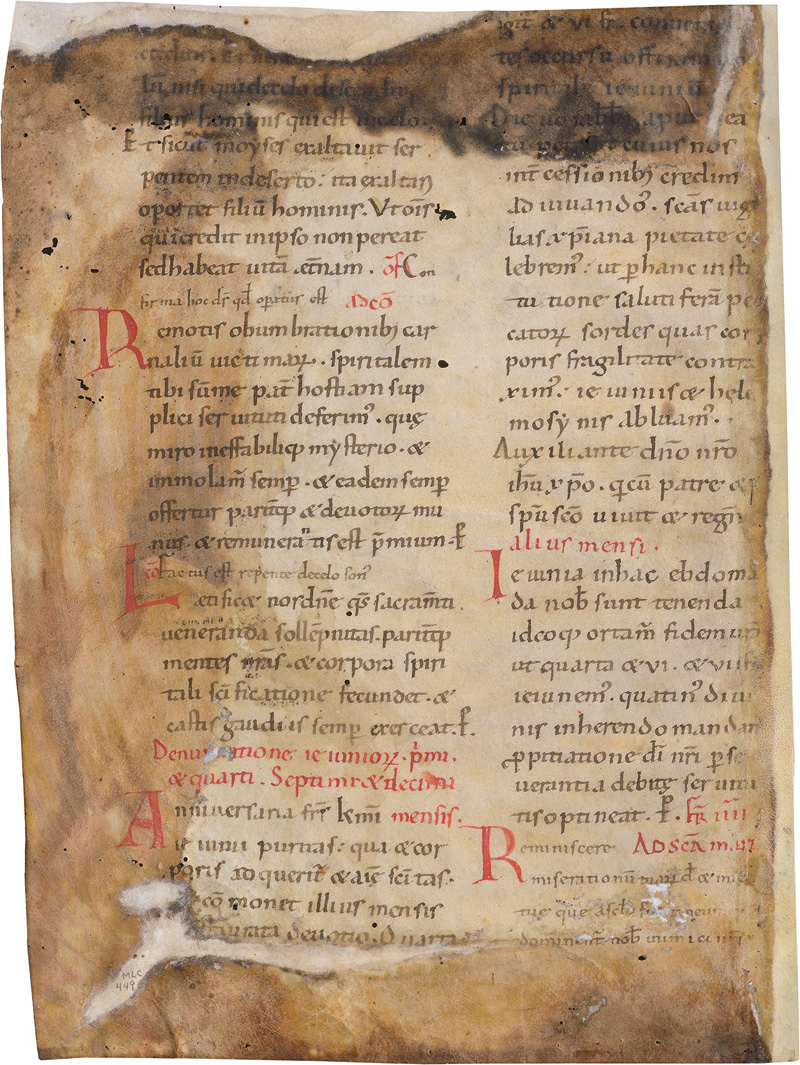 lū nisi qui de celo descendit
filius hominis qui est in celo
Et sicut moyses exaltavit ser
pentem indeserto: ita exaltari
oportet filiū hominis. Ut oīs
qui credit inipso non pereat
sedhabeat uitā etnam. of Con
firma hoc ds qd operatus est adcō
Remotis obumbrationibꝫ car
naliū uictimaꝝ. spiritalem
tibi sūme pat hostiam sup
plici seruituti deferim᾽. quę
miro ineffabiliqꝫ mysterio. &
immolat semp. & eadem semp
offertur paritqꝫ & devotoꝝ mu
nus. & remunerantis est pmium. P
cō Factus est repente decelo son᾽
Lætificæ nordne qs sacramti
veneranda sollēpnitas. paritqꝫ
mentes nras. & corpora spiri
tali scificatione fecundet. &
castis gaudiis semp exerceat. P.
Denuntiatione ieiunioꝝ. pmi.
& quarti. Septimi & decimi
Anniversaria frs kmi mensis.
ieiunii puritas: qua & cor
poris adquerit & aīę scītas.
cō monet illius mensis
instaurata devotio. Quarta
igit & vi fr. convenien
tes occursu offeram
spiritale ieiuniū
Die vo sabbi. aput sca
cuius nos
int cessionibꝫ credim
ad iuuandos. scās uigi
lias xpiana pietate ce
lebrem᾽: ut p hanc insti
tutione salutiferā pec
catoꝝ sordes quas cor
poris fragilitate contra
xim᾽: ieiuniis & hele
mosynis abluam᾽.
Auxiliante dno nro
ihū xpo. q cū patre &
spū scō uiuit & regn
alius mensi.
Ieiunia inhac ebdoma
da nob sunt tenenda
ideoqꝫ ortam fidem urā
ut quarta & vi. & vii fr
ieiunem᾽. quatin᾽ diui
nis inherendo mandat
ppitiatione di nri pse
uerantia debitę seruitu
tis optineat. P. FR IIII
Reminiscere AD SCA MAR
miserationū tuarū d & mise
tue que a sclo
dominent nob inimici nri
MLC
449